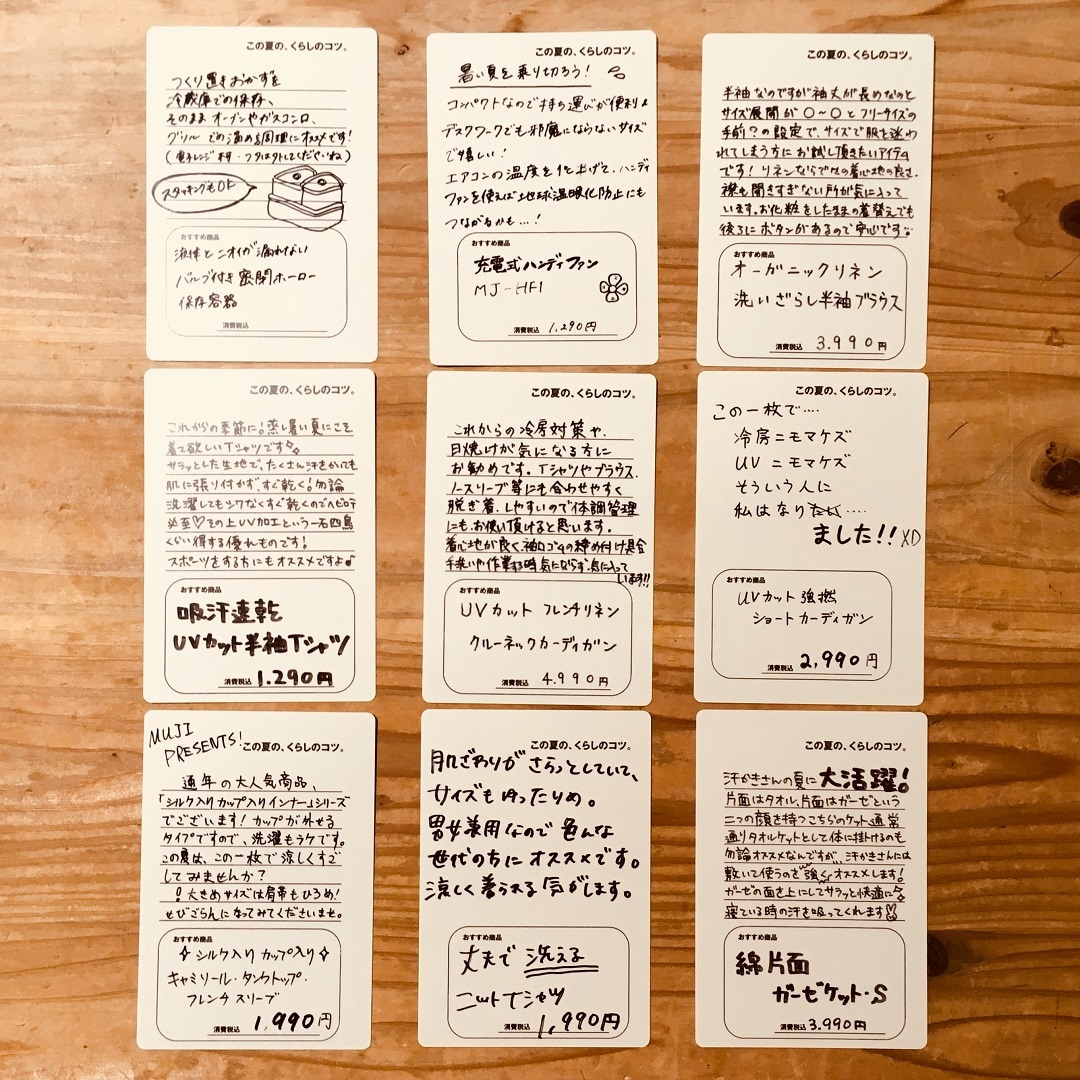 この夏の、くらしのコツ。
つくり置きおかずを
冷蔵庫での保存、
そのままオーブンやガスコンロ、
グリルでの温め調理にオススメです!
(電子レンジ不可・フタはタトしてくださいね)
スタッキングもOK
おすすめ商品
液体とニオイが漏れない
バルブ付き密閉ホーロー
保存容器
消費税込
この夏の、くらしのコツ。
暑い夏を乗り切ろう!
コンパクトなので持ち運びが便利&
デスクワークでも邪魔にならないサイズ
で嬉しい!
エアコンの温度を1℃上げて、ハンディ
ファンを使えば地球温暖化防止にも
つながるかも…!
おすすめ商品
充電式ハンディファン
MJ-HF1
消費税込 1,290円
この夏の、くらしのコツ。
半袖なのですが袖丈が長めなのと
サイズ展開が〇～〇とフリーサイズの
手前?の設定で、サイズで服を迷わ
れてしまう方にお試し頂きたいアイテム
です!リネンならではの着心地の良さ、
襟も開きすぎない所が気に入って
います。お化粧をしたままの着替えでも
後ろにボタンがあるので安心です
おすすめ商品
オーガニックリネン
洗いざらし半袖ブラウス
消費税込 3.990円
この夏の、くらしのコツ。
これからの季節に!蒸し暑い夏にこそ
着て欲しいTシャツです
サラッとした生地で、たくさん汗をかいても
肌に張り付かず、すぐ乾く!勿論
洗濯してもシワなくすぐ乾くのでヘビロテ
必至♡その上UV加工という一石四鳥
くらい得する優れものです!
スポーツをする方にもオススメですよ♪
おすすめ商品
吸汗速乾
UVカット半袖Tシャツ
消費税込 1.290円
この夏の、くらしのコツ。
これからの冷房対策や、
日焼けが気になる方に
お勧めです。Tシャツやブラウス、
ノースリーブ等にも合わせやすく
脱ぎ着しやすいので体調管理
にも、お使い頂けると思います。
着心地が良く、袖口ゴムの締め付け具合
手洗いや作業する時気にならず、気に入って
います!!
おすすめ商品
UVカット フレンチリネン
クルーネックカーディガン
消費税込 4.990円
この夏の、くらしのコツ。
この一枚で‥‥
冷房ニモマケズ
UVニモマケズ
そういう人に
私はなり‥‥
ました!! XD
おすすめ商品
UVカット強撚
ショートカーディガン
消費税込 2,990円
MUJI
PRESENTS!
この夏の、くらしのコツ。
通年の大人気商品、
「シルク入りカップ入りインナー」シリーズ
でございます!カップが外せる
タイプですので、洗濯もラクです。
この夏は、この一枚で涼しくすご
してみませんか?
!大きめサイズは肩帯もひろめ!
ぜひごらんになってみてくださいませ。
おすすめ商品
✧シルク入りカップ入り✧
キャミソール・タンクトップ・
フレンチスリーブ
消費税込 1,990円
この夏の、くらしのコツ。
肌ざわりがさらっとしていて、
サイズもゆったりめ。
男女兼用なので色んな
世代の方にオススメです。
涼しく着られる気がします。
おすすめ商品
丈夫で洗える
ニットTシャツ
消費税込 1,990円
この夏の、くらしのコツ。
汗かきさんの夏に大活躍!
片面はタオル、片面はガーゼという
二つの顔を持つこちらのケット、通常
通りタオルケットとして体に掛けるのも
勿論オススメなんですが、汗かきさんには
敷いて使うのを強くオススメします!
ガーゼの面を上にしてサラッと快適に
寝ている時の汗を吸ってくれます
おすすめ商品
綿片面
ガーゼケット・S
消費税込 3.990円